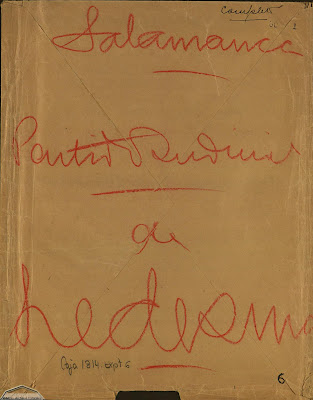 Completo
Salamanca
Partido Judicial
de
Ledesma
Caja 1814. expt 6
6